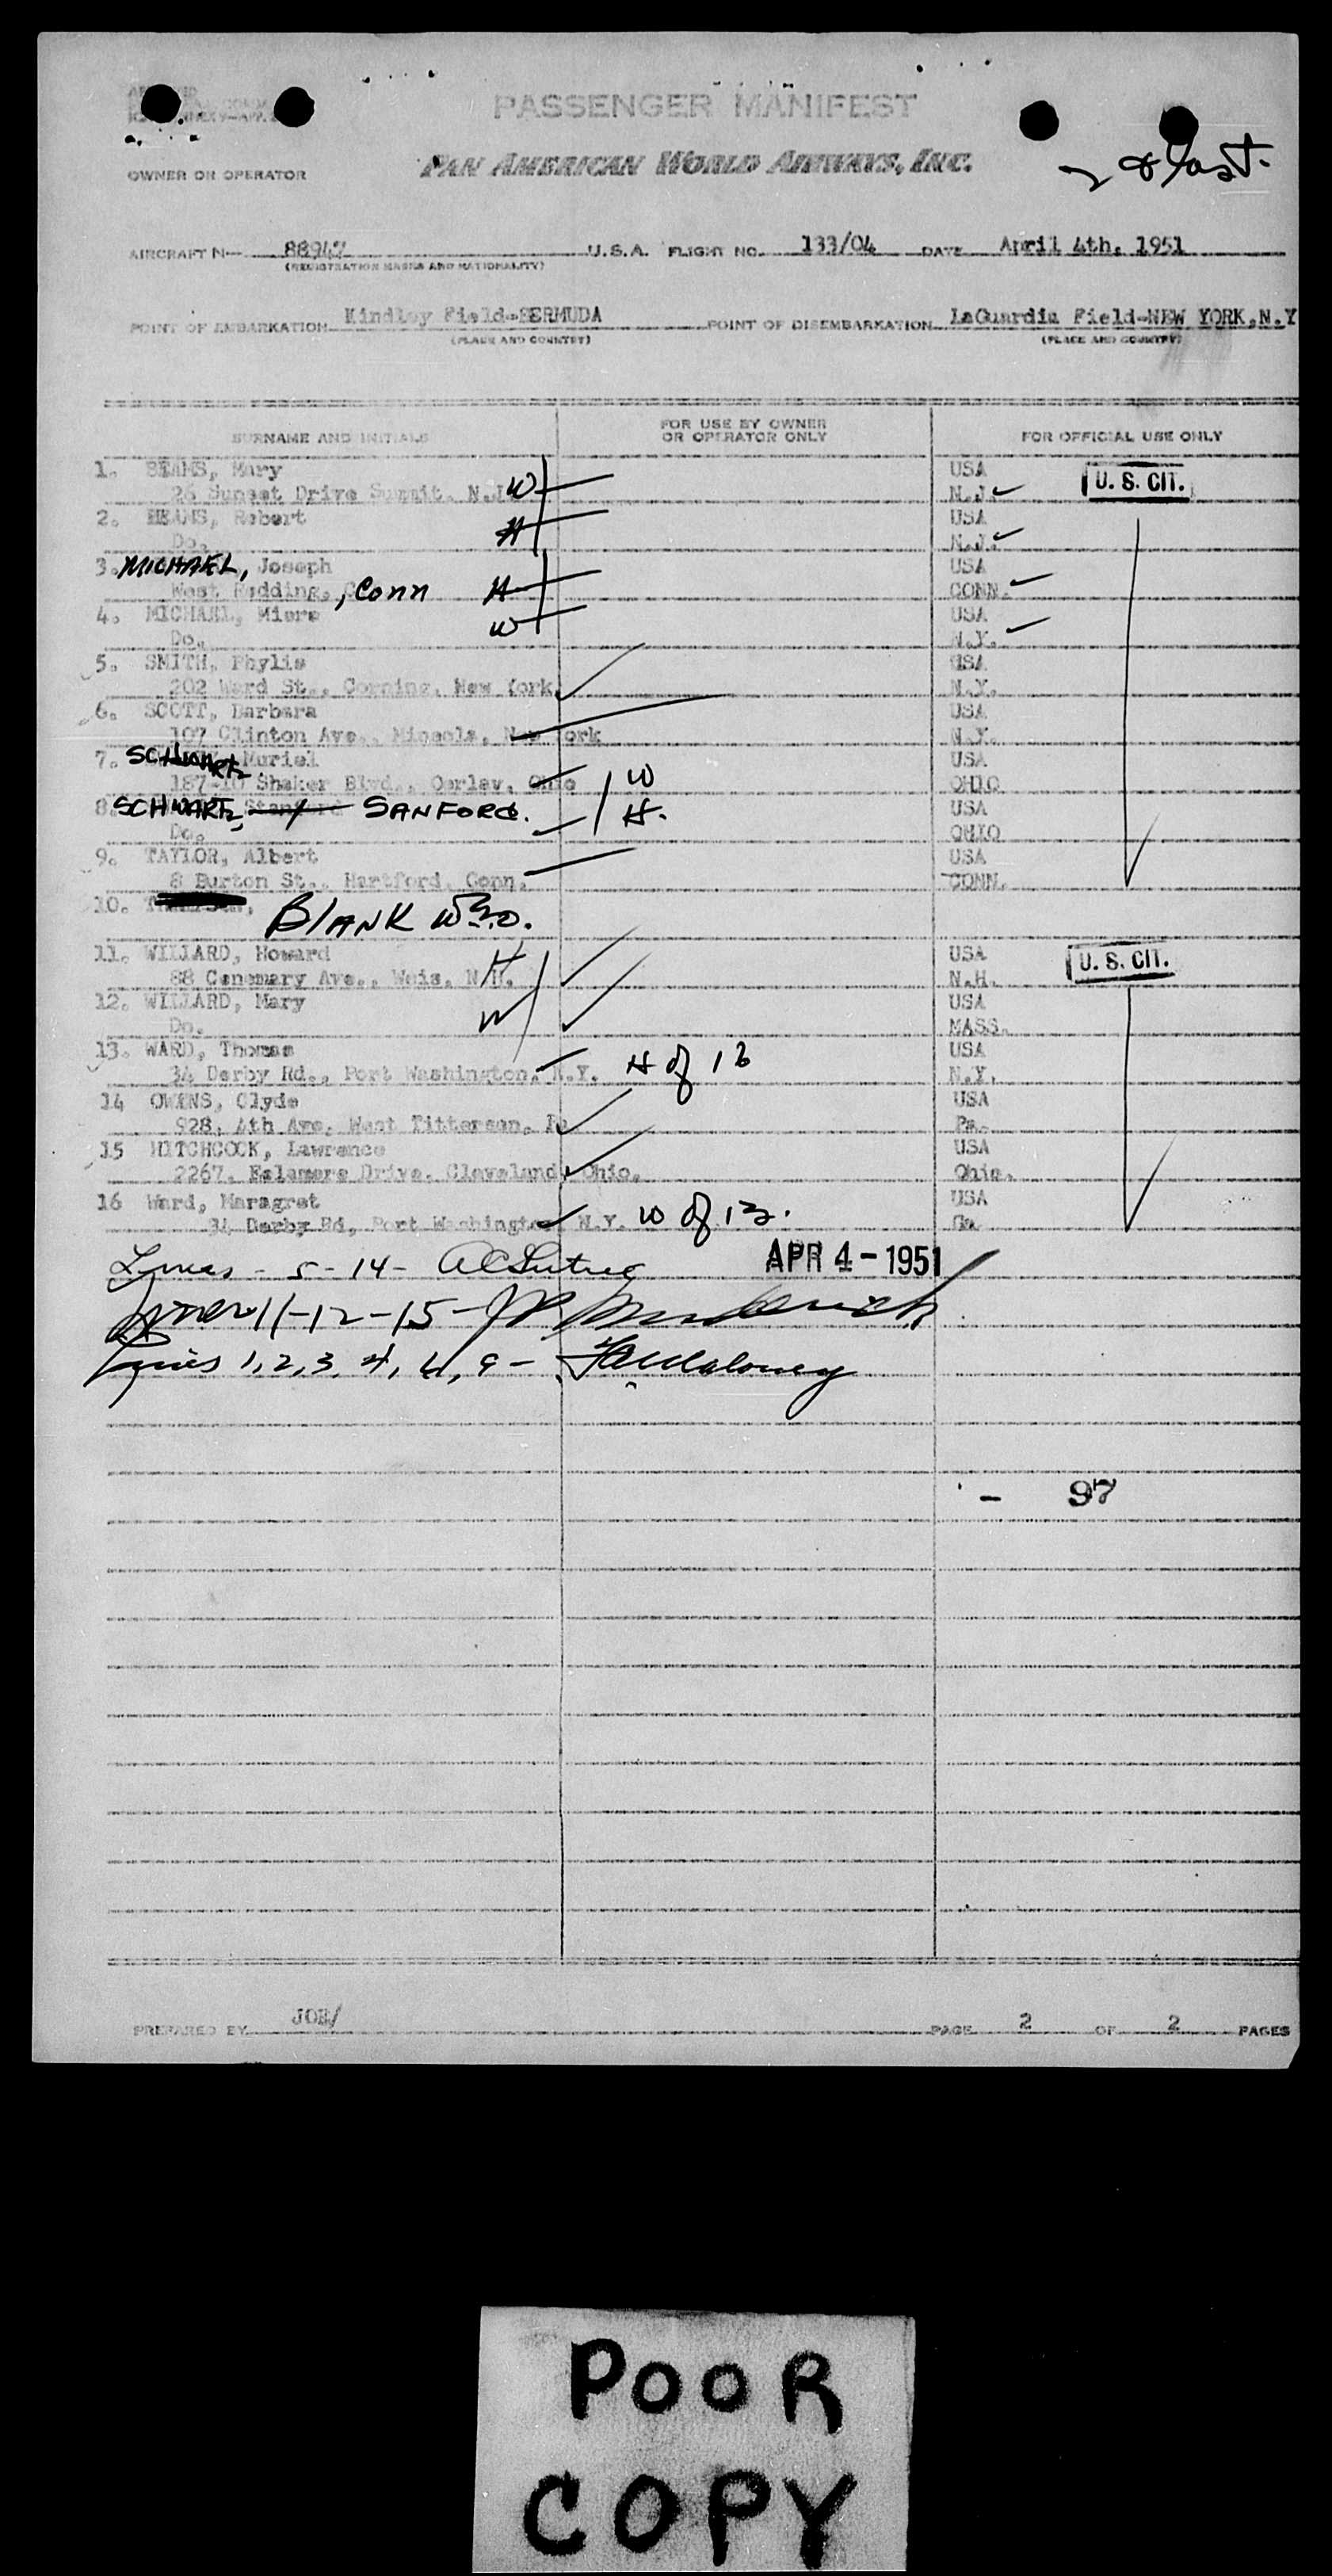 PASSENGER MANIFEST
OWNER OR OPERATOR PAN AMERICAN WORLD AIRWAYS, INC. 2 & last.
AIRCRAFT N— 88947 U.S.A. FLIGHT NO. 133/04 DATE April 4th, 1951
(REGISTRATION MARKS AND NATIONALITY)
POINT OF EMBARKATION Kindley Field-BERMUDA POINT OF DISEMBARKATION LaGuardia Field-NEW YORK,N.Y
(PLACE AND COUNTRY) (PLACE AND COUNTRY)
SURNAME AND INITIALS FOR USE BY OWNER OR OPERATOR ONLY FOR OFFICIAL USE ONLY
1. BEAMS, Mary USA
26 Sunset Drive Summit, N.J. W N.J. U. S. CIT.
2. Robert USA
Do. H N.J.
3. MICHAEL, Joseph USA
West Redding, , Conn H CONN.
4. MICHAEL, USA
Do. W N.Y.
5. SMITH, Phylis USA
202 Ward St., Corning, New York N.Y.
6. SCOTT, Barbara USA
107 Clinton Ave., Mineola, New York N.Y.
7. SCHWARTZ Muriel USA
187-10 Shaker Blvd., Ohio W OHIO
8. SCHWARTZ, SANFORD. H. USA
Do. OHIO
9. TAYLOR, Albert USA
8 Burton St., Hartford, Conn. CONN.
10. BLANK
11. WILLARD, Howard H USA
88 Ave., N.H. N.H. U. S. CIT.
12. WILLARD, Mary USA
Do. W MASS.
13. WARD, Thomas USA
34 Derby Rd., Port Washington, N.Y. H of 16 N.Y.
14 OWENS, Clyde USA
928, 4th Ave, West Pa. Pa.
15 HITCHCOCK, Lawrence USA
2267, Drive, Cleveland, Ohio. Ohio.
16 Ward, Maragret USA
34 Derby Rd, Port Washington N.Y. W of 13.
Lines - 5-14- APR 4-1951
Lines 11-12-15-
Lines 1,2,3, 4, 6, 9 -
- 97
PREPARED BY JOE/ PAGE 2 OF 2 PAGES
POOR
COPY